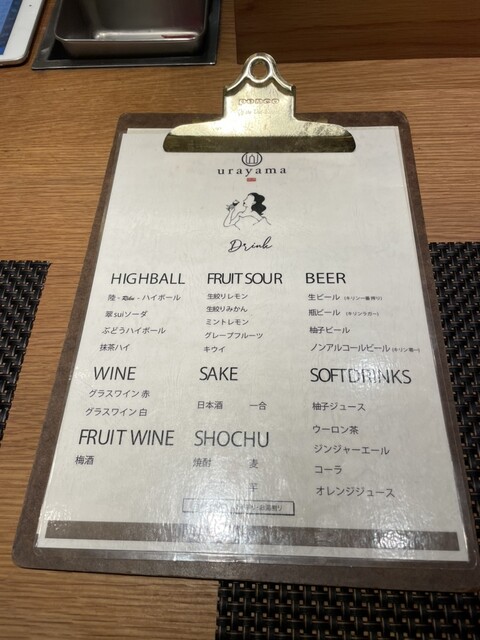 penco
urayama
Drink
HIGHBALL
陸 - riku - ハイボール
翠 suiソーダ
ぶどうハイボール
抹茶ハイ
FRUIT SOUR
生絞りレモン
生絞りみかん
ミントレモン
グレープフルーツ
キウイ
BEER
生ビール (キリン一番搾り)
瓶ビール (キリンラガー)
柚子ビール
ノンアルコールビール
WINE
グラスワイン 赤
グラスワイン 白
SAKE
日本酒 一合
SOFT DRINKS
柚子ジュース
ウーロン茶
ジンジャーエール
コーラ
オレンジジュース
FRUIT WINE
梅酒
SHOCHU
焼酎 麦
芋